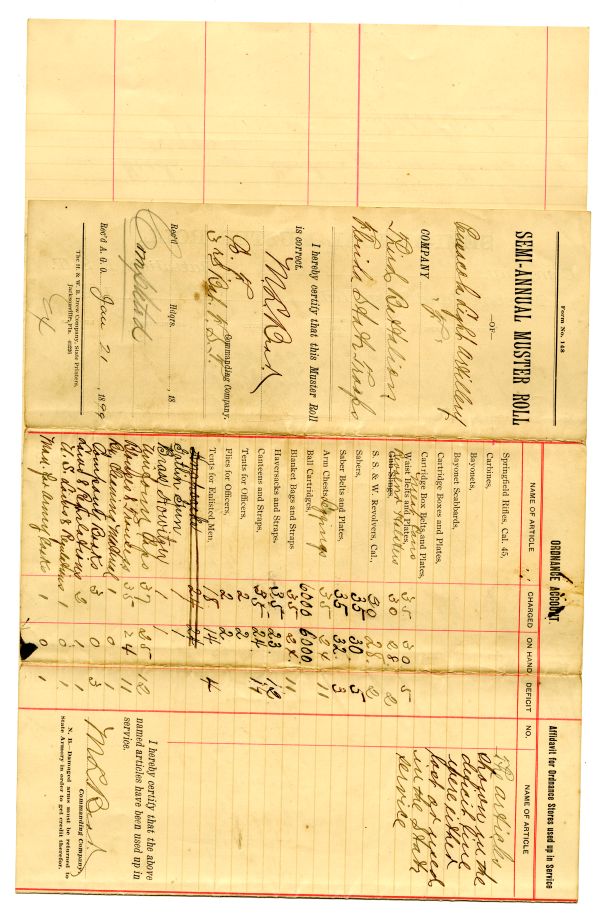 Form No. 148
SEMI-ANNUAL MUSTER ROLL
—OF—
Light Artillery
COMPANY F
Third Battalion
Florida State Troops
I hereby certify that this Muster Roll
is correct.
Commanding Company,
Rec'd Hdqrs. , 18
Completed
Rec'd A. G. O. Jan 21 , 1899
The H. & W. B. Drew Company, State Printers,
Jacksonville, Fla.
ORDNANCE ACCOUNT.
NAME OF ARTICLE CHARGED ON HAND DEFICIT
Springfield Rifles, Cal. 45,
Carbines,
Bayonets,
Bayonet Scabbards,
Cartridge Boxes and Plates,
Cartridge Box Belts and Plates,
Waist Belts and Plates, 35 30 5
Gun Slings, 30 28 2
S. & W. Revolvers, Cal., 30 28 2
Sabers, 35 30 5
Saber Belts and Plates, 35 32 3
Arm Chests, 35 24 11
Ball Cartridges, 6000 6000
Blanket Bags and Straps 35 24 11
Haversacks and Straps, 35 23 12
Canteens and Straps, 35 24 11
Tents for Officers, 2 2
Flies for Officers, 2 2
Tents for Enlisted Men, 18 14 4
Gatlin Gun 1 1
Brass Howitzer 1 1
Uniform Caps 37 25 12
Blouses & Trousers 35 24 11
Cleaning Material 1 0 1
Company Books 3 0 3
Laws & Regulations 2 1 1
1 0 1
1 0 1
Affidavit for Ordnance Stores used up in Service
NO. NAME OF ARTICLE
The articles
shown in the
deficit line
were either
lost or used
in the State
service
I hereby certify that the above
named articles have been used up in
service.
Commanding Company,
N. B.—Damaged arms must be returned to
State Armory in order to get credit therefor.